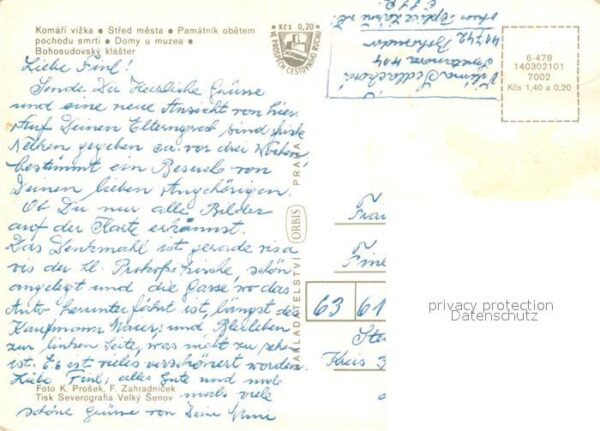 Komáří vížka • Střed města • Památník obětem
pochodu smrti • Domy u muzea •
Bohosudovský klášter
Kčs 0,20
VE PROSPĚCH CESTOVNÍHO RUCHU
6-478
140302101
7002
Kčs 1,40 a 0,20
41742
Liebe Finl!
Sende Dir Herzliche Grüsse
und eine neue Ansicht von hier.
Auf Deinen Elterngrab sind frische
Nelken gegeben ca. vor drei Wochen
bestimmt ein Besuch von
Deinen lieben Angehörigen.
Ob Du nur alle Bilder
auf der Karte erkönnst.
Das Denkmahl ist gerade visa
vis der hl. Prokopikirche, schön
angelegt und die Gasse, wo das
Auto herunter fährt ist, längst des
Kaufmann und
zur linken Seite, was nicht zu sehen
ist. Es ist vieles verschönert worden.
Liebe Finl, alles Gute und noch
mals viele
schöne Grüsse von Deine
Foto K. Prošek, F. Zahradníček
Tisk Severografia Velký Šenov
NAKLADATELSTVÍ ORBIS PRAHA
Fra
Fin
63 61
Ste
Kreis
privacy protection
Datenschutz